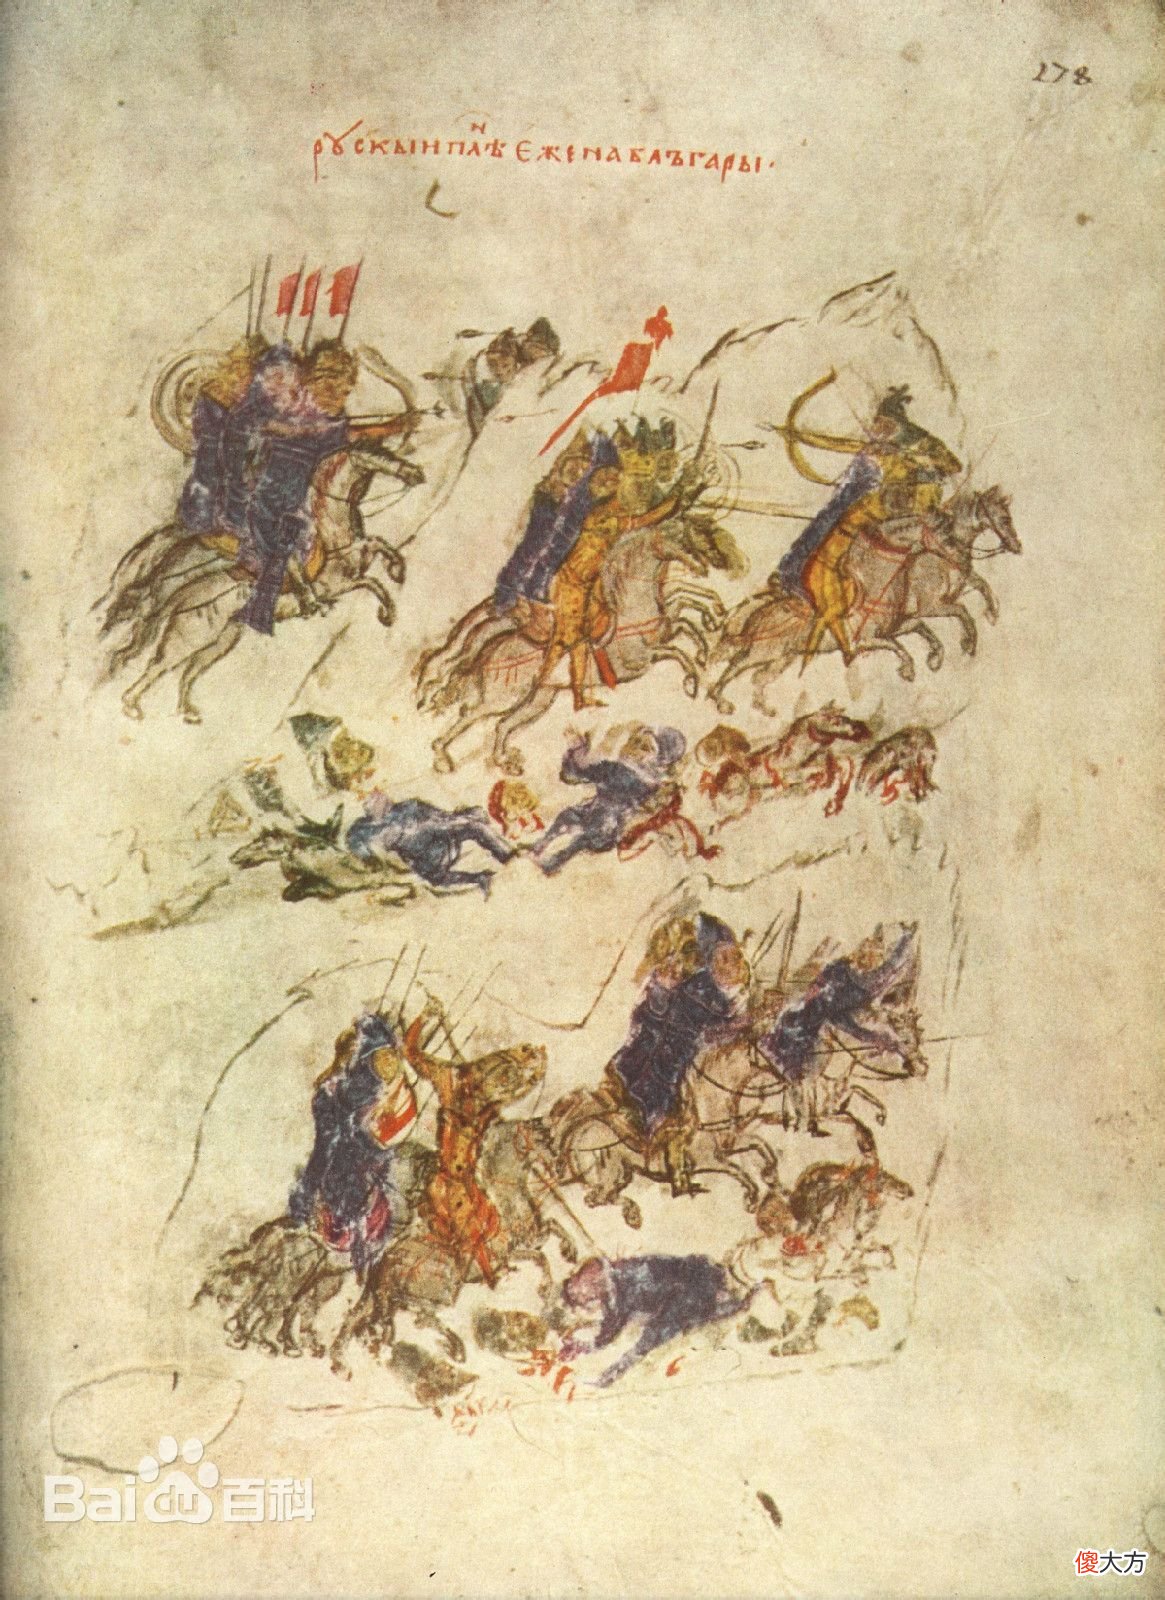 178
рꙋскыи плѣⁿ еже на блъгары·
Bai du 百科
傻大方